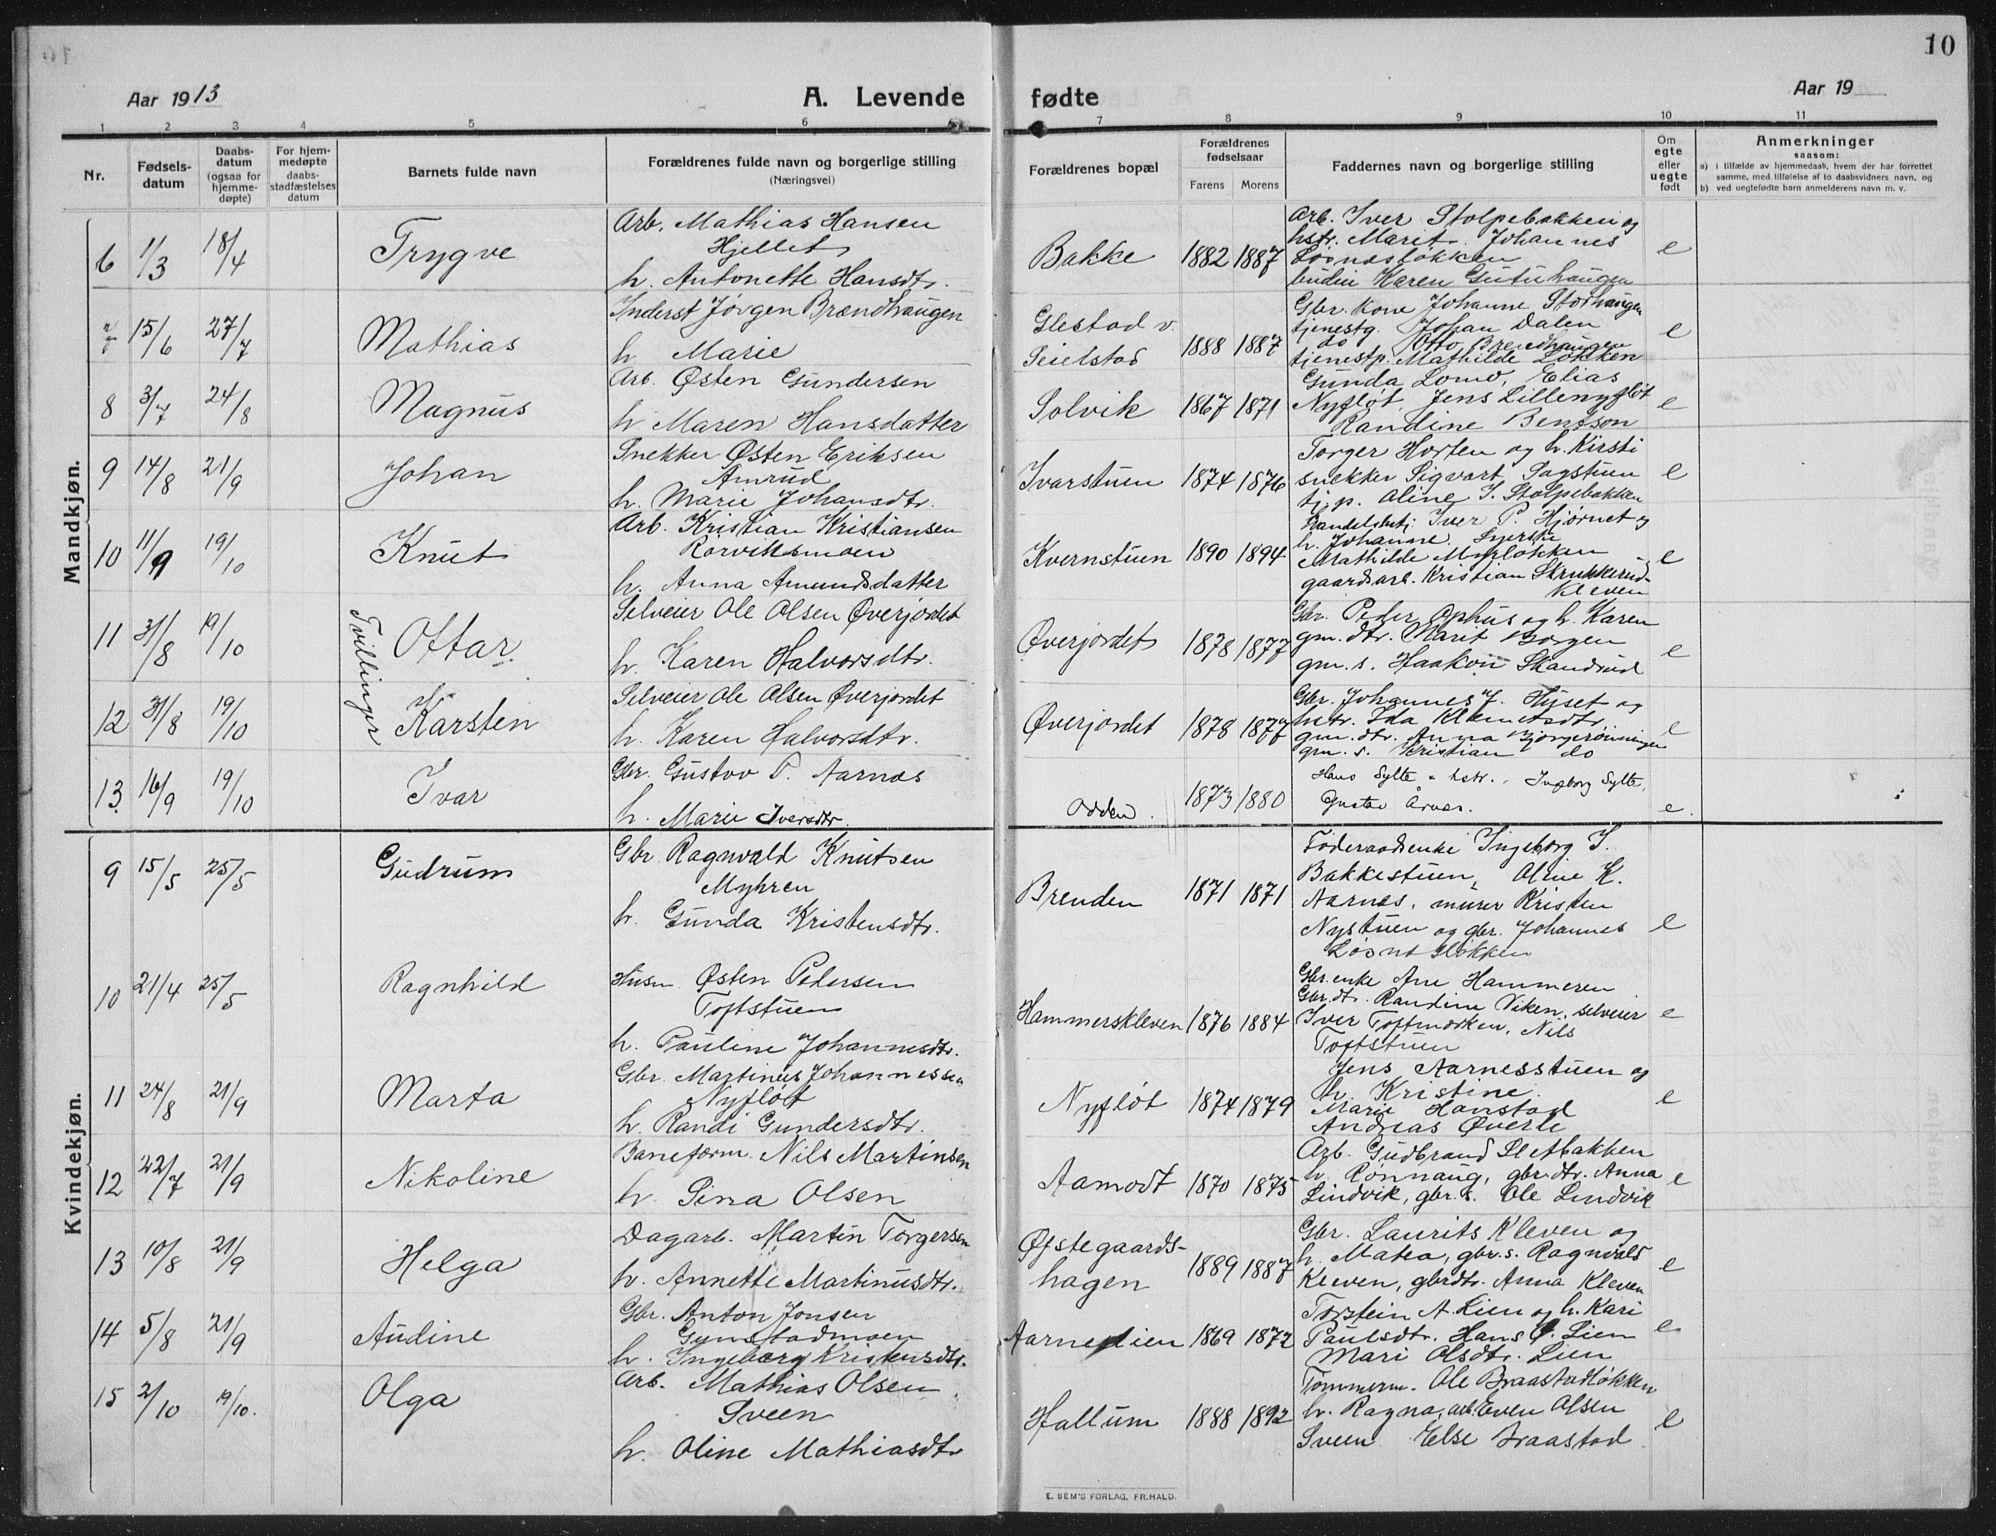 10
Aar 1913
A. Levende fødte
Aar 19
1 2 3 4 5 6 7 8 9 10 11
Nr.
Fødsels-
datum
Daabs-
datum
(ogsaa for
hjemme-
døpte)
For hjem-
medøpte
daabs-
stadfæstelses
datum
Barnets fulde navn
Forældrenes fulde navn og borgerlige stilling
(Næringsvei)
Forældrenes bopæl
Forældrenes
fødselsaar
Farens Morens
Faddernes navn og borgerlige stilling
Om
egte
eller
uegte
født
Anmerkninger
saasom:
a) i tilfælde av hjemmedaab, hvem der har forrettet
samme, med tilføielse af to daabsvidners navn, og
b) ved uegtefødte barn anmelderens navn m. v.
Mandkjøn.
6 1/3 18/4 Trygve
Arb. Mathias Hansen
Hjellet
h. Antonette Hansdtr.
Bakke 1882 1887
Arb. Iver Stolpebakken og
hstr. Marit. Johannes
Løsnesløkken
budeie Karen Gutuhaugen
e
7 15/6 27/7 Mathias
Inderst Jørgen Brændhaugen
h. Marie
Glestad v.
Seielstad
1888 1887
Gbr. kone Johanne Storhaugen
tjenestg. Johan Dalen
do Otto Brendhaugen
tjenestp. Mathilde Løkken
e
8 3/7 24/8 Magnus
Arb. Østen Gundersen
h. Maren Hansdatter
Solvik 1867 1871
Gunda Lomo, Elias
Nyfløt, Jens Lillenyfløt
Randine Bentson
e
9 14/8 21/9 Johan
Snekker Østen Eriksen
Amrud
h. Marie Johansdtr.
Ivarstuen 1874 1876
Torger Horten og h. Kirsti
snekker Sigvart Sagstuen
tj.p. Aline I. Stolpebakken
e
10 11/9 19/10 Knut
Arb. Kristian Kristiansen
Rorviksmoen
h. Anna Amundsdatter
Kvernstuen 1890 1894
Handelsbetj. Iver P. Hjørnet og
h. Johanne
Mathilde Myrløkken
gaardsarb. Kristian Skrukkerud-
kleven
e
Tvillinger
11 31/8 19/10 Ottar
Selveier Ole Olsen Øverjordet
h. Karen Halvorsdtr.
Øverjordet 1878 1877
Gbr. Peder Ophus og h. Karen
gm. dtr. Marit Borgen
gm. s. Haakon Skandrud
e
12 31/8 19/10 Karsten
Selveier Ole Olsen Øverjordet
h. Karen Halvorsdtr.
Øverjordet 1878 1877
Gbr. Johannes J. Huset og
hstr. Ida Klemetsdtr.
gm. dtr. Anna Bjørgerønningen
gm. s. Kristian do
e
13. 16/9 19/10 Ivar
Gbr. Gustav P. Aarnes
h. Marie Iversdtr.
Odden. 1873 1880
Hans Sylte & hstr. Ingeborg Sylte,
Gustav Årnes.
e.
Kvindekjøn.
9 15/5 25/5 Gudrum
Gbr. Ragnvald Knutsen
Myhren
h. Gunda Kristensdtr.
Brenden 1871 1871
Føderaadsenke Ingeborg I.
Bakkestuen, Oline K.
Aarnes, murer Kristen
Nystuen og gbr. Johannes
Løsnesløkken
e
10 21/4 25/5 Ragnhild
Husm Østen Pedersen
Toftstuen
h. Pauline Johannesdtr.
Hammerskleven 1876 1884
Gbr.enke Ane Hammeren
Gbr.dtr. Randine Viken, selveier
Iver Toftmarken, Nils
Toftstuen
e
11 24/8 21/9 Marta
Gbr. Martinus Johannessen
Nyfløt
h. Randi Gundersdtr.
Nyfløt 1874 1879
Jens Aarnesstuen og
h. Kristine
Marie Hanstad
Andreas Øverli
e
12 22/7 21/9 Nikoline
Baneform. Nils Martinsen
h. Sina Olsen
Aamodt 1870 1875
Arb. Gudbrand Sletbakken
h. Rønnaug, gbr.dtr. Anna
Lindvik, gbr.s. Ole Lindvik
e
13 10/8 21/9 Helga
Dagarb. Martin Torgersen
h. Annette Martinusdtr.
Øfstegaards-
hagen
1889 1887
Gbr. Laurits Kleven og
h. Matea, gbr.s. Ragnvald
Kleven, gbrdtr. Anna Kleven
e
14 5/8 21/9 Audine
Gbr. Anton Jonsen
Gunstadmoen
h. Ingeborg Kristensdtr.
Aarneslien 1869 1872
Torstein A. Lien og h. Kari
Paulsdtr. Hans O. Lien
Mari Olsdtr. Lien
e
15 2/10 19/10. Olga
Arb. Mathias Olsen
Sveen
h. Oline Mathiasdtr
Hallum 1888 1892
Tømmerm. Ole Braastadløkken
h. Ragna, arb. Even Olsen
Sveen Else Braastad
e
E. SEM'S FORLAG, FR.HALD.